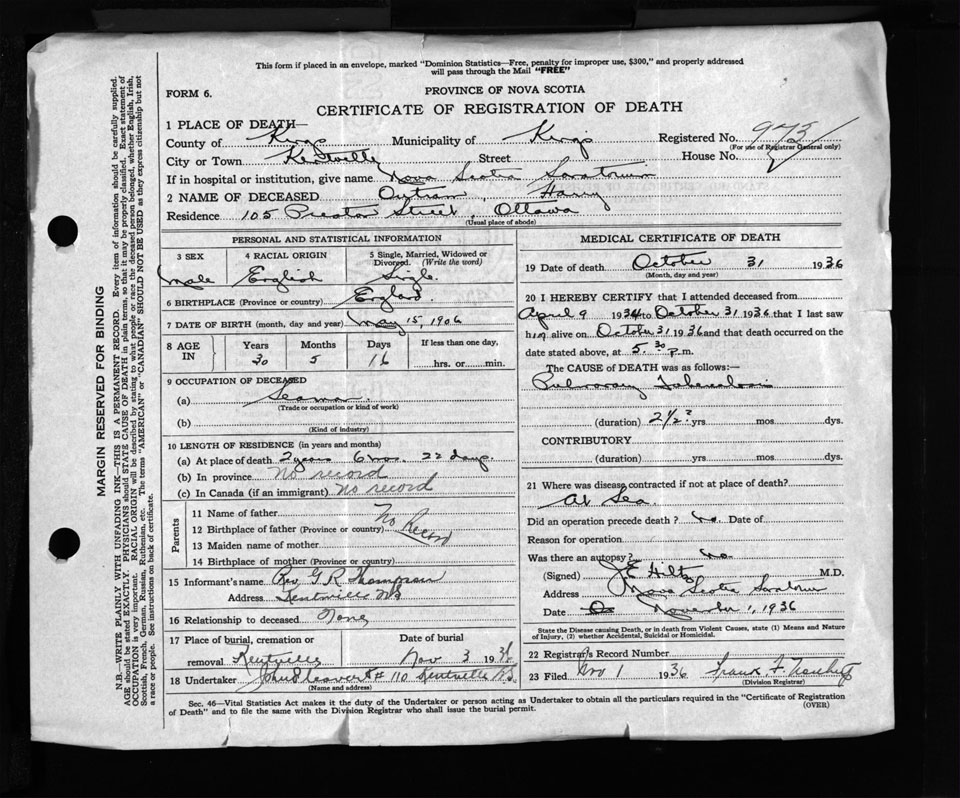 This form if placed in an envelope, marked "Dominion Statistics—Free, penalty for improper use, $300," and properly addressed
will pass through the Mail "FREE"
FORM 6.
PROVINCE OF NOVA SCOTIA
CERTIFICATE OF REGISTRATION OF DEATH
1 PLACE OF DEATH—
County of Kings Municipality of Kings Registered No. 973
(For use of Registrar General only)
City or Town Kentville Street House No.
If in hospital or institution, give name Nova Scotia Sanatorium
2 NAME OF DECEASED Outram, Harry
Residence 105 Preston Street, Ottawa
(Usual place of abode)
PERSONAL AND STATISTICAL INFORMATION
3 SEX male
4 RACIAL ORIGIN English
5 Single, Married, Widowed or Divorced. (Write the word) Single
6 BIRTHPLACE (Province or country) England.
7 DATE OF BIRTH (month, day and year) May 15, 1906
8 AGE IN Years Months Days If less than one day,
30 5 16 hrs. or min.
9 OCCUPATION OF DECEASED
(a) Seaman
(Trade or occupation or kind of work)
(b)
(Kind of industry)
10 LENGTH OF RESIDENCE (in years and months)
(a) At place of death 2 years 6 mos. 22 days.
(b) In province No record
(c) In Canada (if an immigrant) No record
Parents
11 Name of father No Record
12 Birthplace of father (Province or country)
13 Maiden name of mother
14 Birthplace of mother (Province or country)
15 Informant's name Rev. G R Thompson
Address Kentville NS
16 Relationship to deceased None
17 Place of burial, cremation or Date of burial
removal Kentville Nov 3 1936
18 Undertaker # 110 Kentville N.S.
(Name and address)
MEDICAL CERTIFICATE OF DEATH
19 Date of death October 31 1936
(Month, day and year)
20 I HEREBY CERTIFY that I attended deceased from
April 9 1934 to October 31, 1936 that I last saw
him alive on October 31 1936 and that death occurred on the
date stated above, at 5.30 p.m.
The CAUSE OF DEATH was as follows:—
Pulmonary Tuberculosis
(duration) 2 1/2 ? yrs mos dys.
CONTRIBUTORY
(duration) yrs mos dys.
21 Where was disease contracted if not at place of death?
At Sea.
Did an operation precede death? no. Date of
Reason for operation
Was there an autopsy? no
(Signed) J E Hiltz M.D.
Address Nova Scotia Sanatorium
Date November 1, 1936
State the Disease causing Death, or in death from Violent Causes, state (1) Means and Nature
of Injury, (2) whether Accidental, Suicidal or Homicidal.
22 Registrar's Record Number
23 Filed Nov 1 1936
(Division Registrar)
Sec. 46—Vital Statistics Act makes it the duty of the Undertaker or person acting as Undertaker to obtain all the particulars required in the "Certificate of Registration
of Death" and to file the same with the Division Registrar who shall issue the burial permit.
(OVER)
MARGIN RESERVED FOR BINDING
N.B.—WRITE PLAINLY WITH UNFADING INK—THIS IS A PERMANENT RECORD. Every item of information should be carefully supplied.
AGE should be stated EXACTLY. PHYSICIANS should STATE CAUSE OF DEATH in plain terms, so that it may be properly classified. Exact statement of
OCCUPATION is very important. RACIAL ORIGIN will be described by stating to what people or race the deceased person belonged, whether English, Irish,
Scottish, French, German, Russian, Ruthenian, etc. The terms "AMERICAN" or "CANADIAN" SHOULD NOT BE USED as they express citizenship but not
a race or people. See instructions on back of certificate.